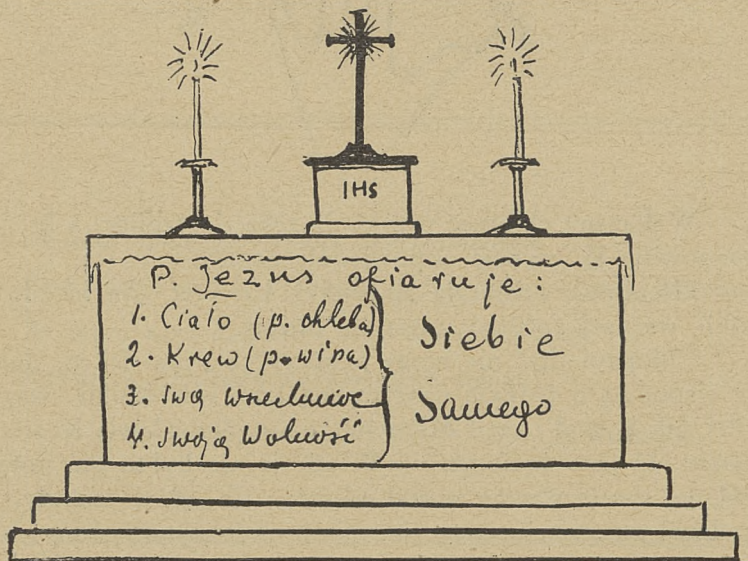 IHS
P. Jezus ofiaruje:
1. Ciało (p. chleba)
2. Krew (p. wina)
3. swą wszechmoc
4. swoją Wolność
Siebie
Samego